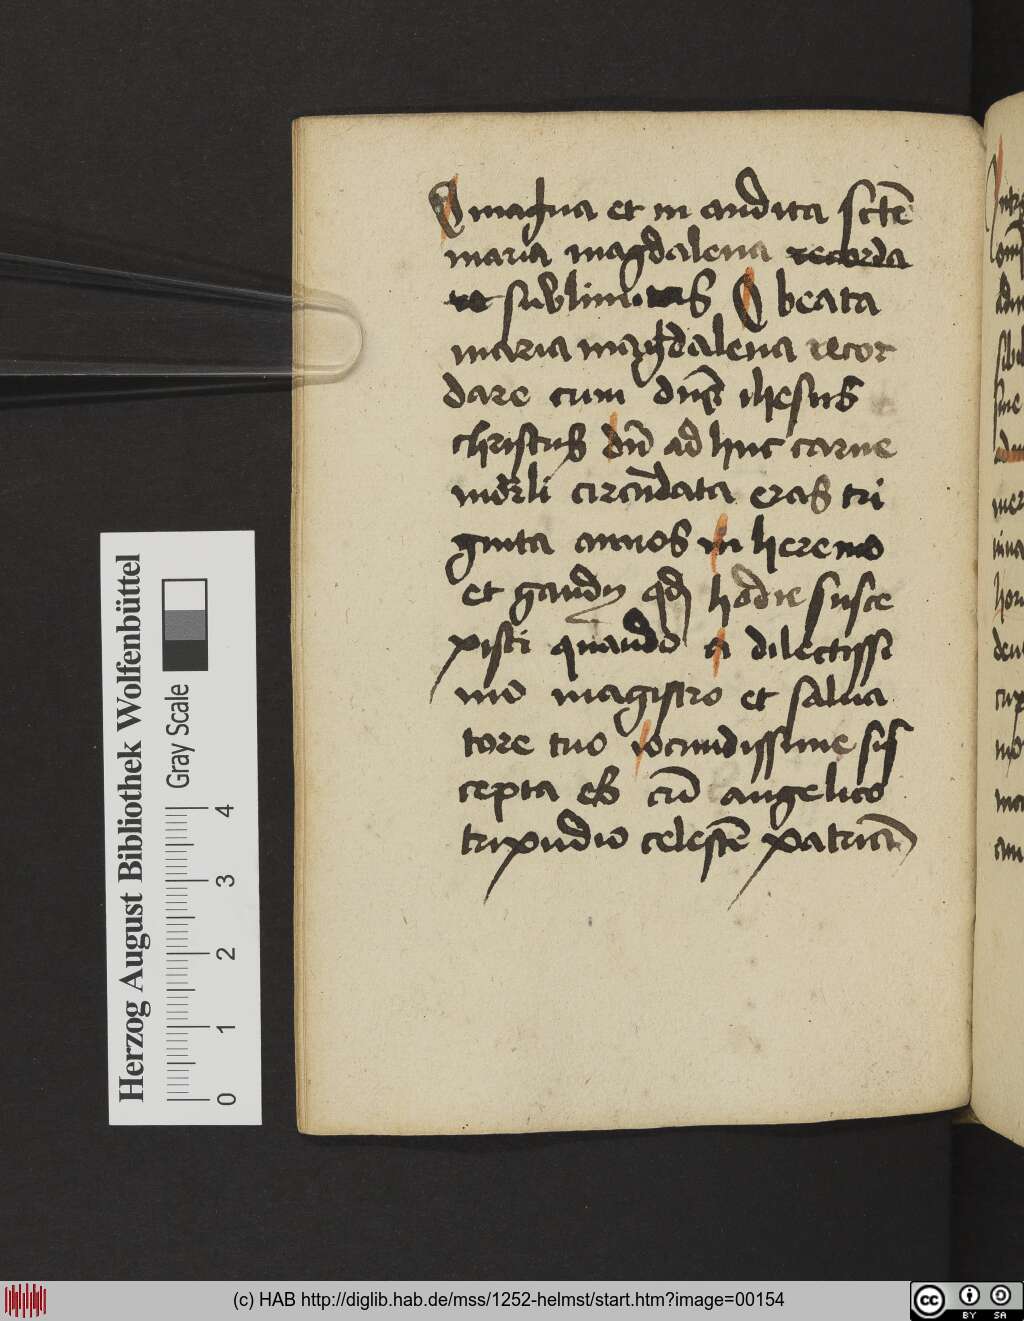 O magna et in audita sctē
maria magdalena recorda
re sublimitas O beata
maria magdalena recor
dare cum dn̄s ihesus
christus dū ad huc carne
mōrli circūdata eras tri
ginta annos in heremo
et gaudy qd hodie susce
pisti quando a dilectissi
mo magistro et salua
tore tuo iocundissime sus
cepta es cū angelico
tripudio celestē patriā
Herzog August Bibliothek Wolfenbüttel
Gray Scale
0 1 2 3 4
(c) HAB http://diglib.hab.de/mss/1252-helmst/start.htm?image=00154
cc BY SA